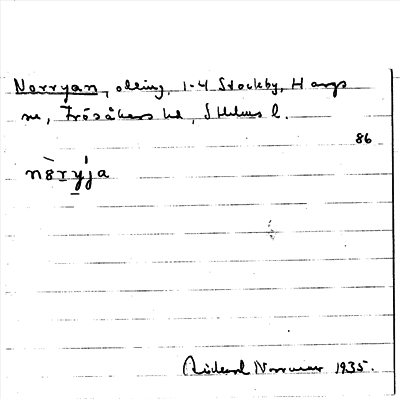 Norryan, odling, 1-4 Stockby, Hargs
sn, Frösåkers hd, Sthlms l.
86
nòryja
Rickard Norrman 1935.